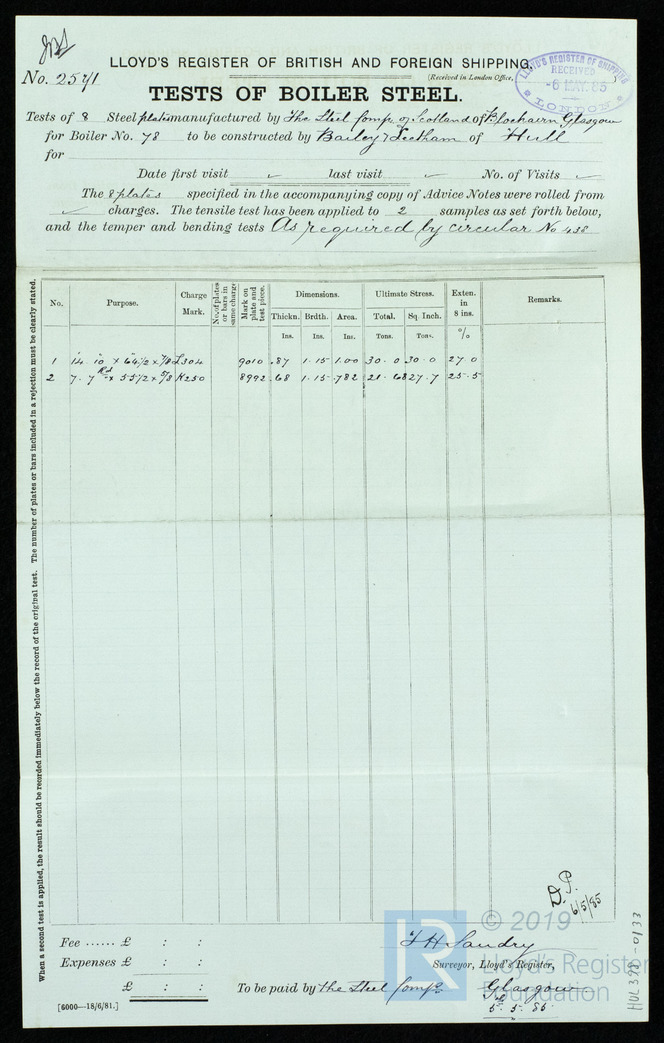 No. 2571
LLOYD'S REGISTER OF BRITISH AND FOREIGN SHIPPING.
(Received in London Office,
LLOYD'S REGISTER OF SHIPPING
RECEIVED
-6 MAY.85
LONDON
TESTS OF BOILER STEEL.
Tests of 8 Steel plates manufactured by The Steel Compy of Scotland of Blochairn Glasgow
for Boiler No. 78 to be constructed by Bailey & Leetham of Hull
for
Date first visit ✓ last visit ✓ No. of Visits ✓
The 8 plates specified in the accompanying copy of Advice Notes were rolled from
✓ charges. The tensile test has been applied to 2 samples as set forth below,
and the temper and bending tests As required by circular No 438
No. Purpose. Charge Mark. No. of plates or bars in same charge Mark on plate and test piece. Dimensions. Ultimate Stress. Exten. in 8 ins. Remarks.
Thickn. Brdth. Area. Total. Sq. Inch.
Ins. Ins. Ins. Tons. Tons. %
1 14. 10 × 64 1/2 × 7/8 L304 9010 .87 1.15 1.00 30.0 30.0 27.0
2 7. 7 × 55 1/2 × 5/8 K250 8992 .68 1.15 .782 21.68 27.7 25.5
When a second test is applied, the result should be recorded immediately below the record of the original test. The number of plates or bars included in a rejection must be clearly stated.
D.P.
6/5/85
Fee ...... £ : :
Expenses £ : :
£ : :
[6000—18/6/81.]
Surveyor, Lloyd's Register,
To be paid by the Steel Compy
Glasgow
5. 5. 85
LR
© 2019
Lloyd's Register
Foundation
HUL378-0133